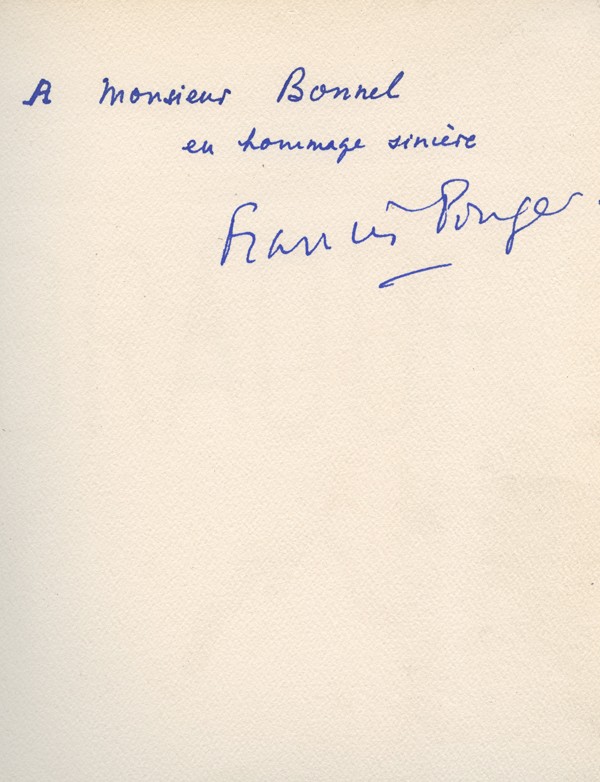 A Monsieur Bonnel
en hommage sincère
Francis Ponge